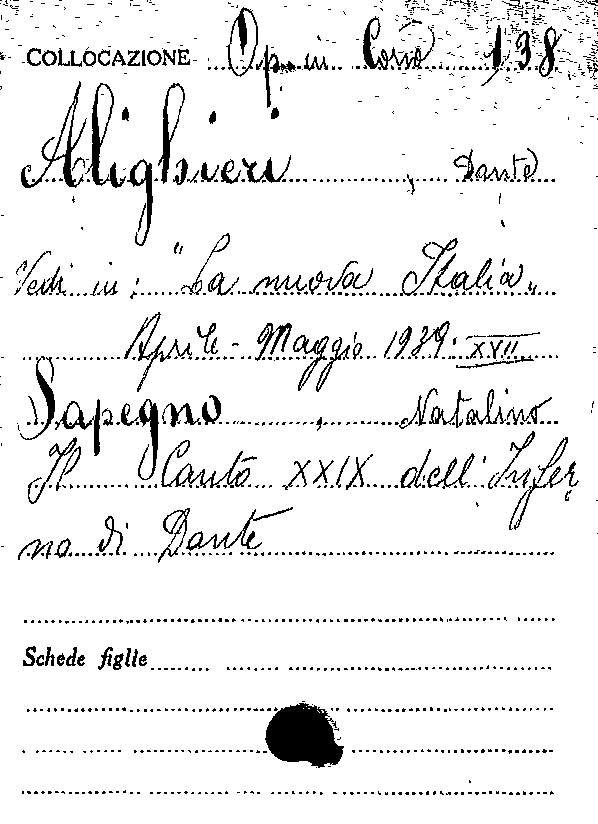 COLLOCAZIONE Op. in Corso 138
Alighieri, Dante
Vedi in: "La nuova Italia„
Aprile - Maggio 1939. XVII
Sapegno, Natalino
Il Canto XXIX dell'Infer
no di Dante
Schede figlie